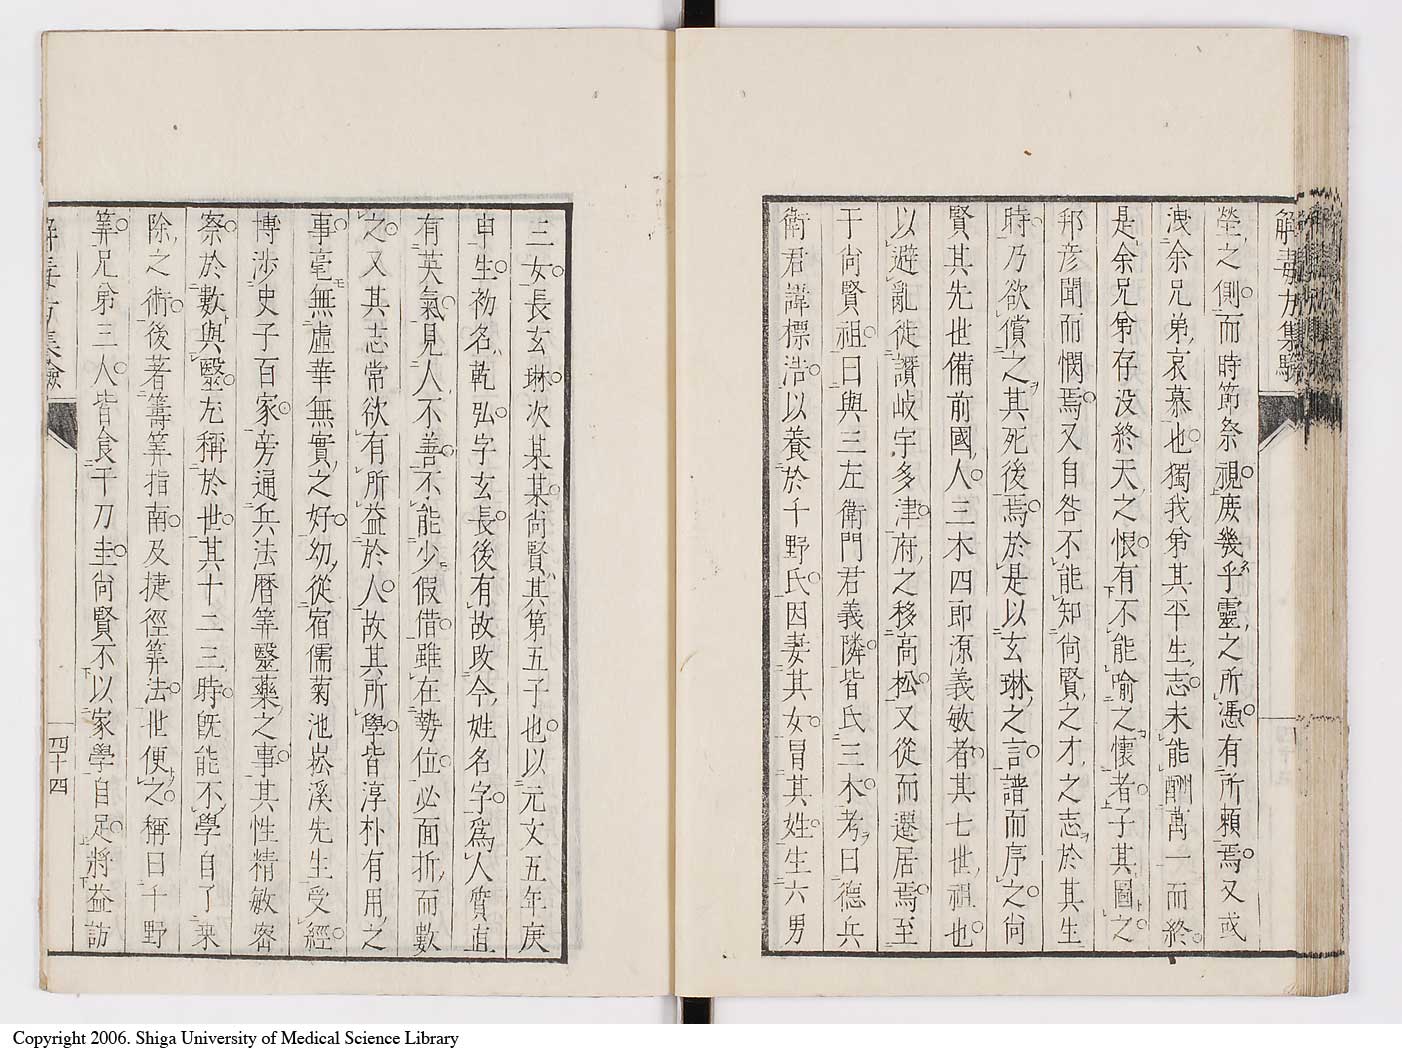 解毒方集驗
塋之側而時節祭視庶幾乎靈之所憑有所賴焉又或
洩余兄弟哀慕也獨我弟其平生志未能酬萬一而終
是余兄弟存没終天之恨有不能喻之懷者子其圖之
邦彦聞而憫焉又自咎不能知尚賢之才之志於其生
時乃欲償之其死後焉於是以玄琳之言譜而序之尚
賢其先世備前國人三木四郎源義敏者其七世祖也
以避亂徙讚岐宇多津府之移高松又從而遷居焉至
于尚賢祖曰與三左衛門君義隣皆氏三木考曰德兵
衛君諱標浩以養於千野氏因妻其女冒其姓生六男
三女長玄琳次某某尚賢其第五子也以元文五年庚
申生初名乾弘字玄長後有故改今姓名字爲人質直
有英氣見人不善不能少假借雖在勢位必面折而數
之又其志常欲有所益於人故其所學皆淳朴有用之
事毫無虛華無實之好幼從宿儒菊池崧溪先生受經
博渉史子百家旁通兵法暦筭毉藥之事其性精敏宻
察於數與毉尤稱於世其十二三時既能不學自了乗
除之術後著籌筭指南及捷徑筭法世便之稱曰千野
筭兄弟三人皆食于刀圭尚賢不以家學自足將益訪
解毒方集驗
四十四
Copyright 2006. Shiga University of Medical Science Library